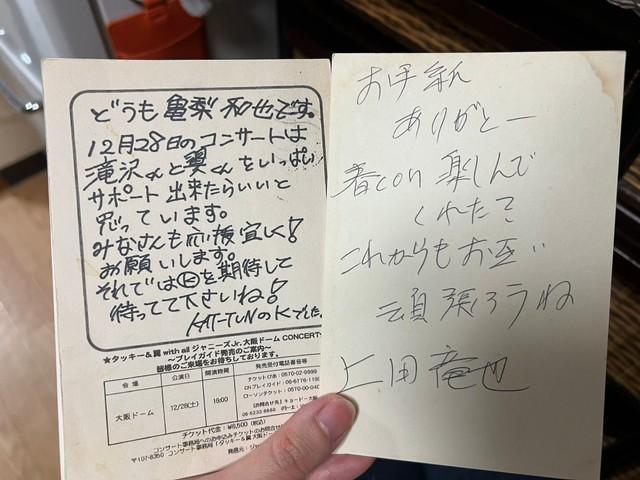 どうも亀梨和也です。
12月28日のコンサートは
滝沢くんと翼くんをいっぱい
サポート出来たらいいと
思っています。
みなさんも応援宜しく!
お願いします。
それでは㋪を期待して
待ってて下さいね!
KAT-TUNのKでした
★タッキー&翼 with all ジャニーズJr.大阪ドーム CONCERT
~プレイガイド発売のご案内~
皆様のご来場をお待ちしております。
会場 公演日 開演時間 発売受付電話番号等
大阪ドーム 12/28(土) 18:00
チケットぴあ:0570-02-9999
CNプレイガイド:06-6776-119
ローソンチケット:0570-00-040
【お問合せ先】キョードー大阪
06-6233-8888
チケット代金:¥6,500(税込)
〒107-8350
お手紙
ありがとー
春con 楽しんで
くれたて
これからもお互い
頑張ろうね
上田竜也